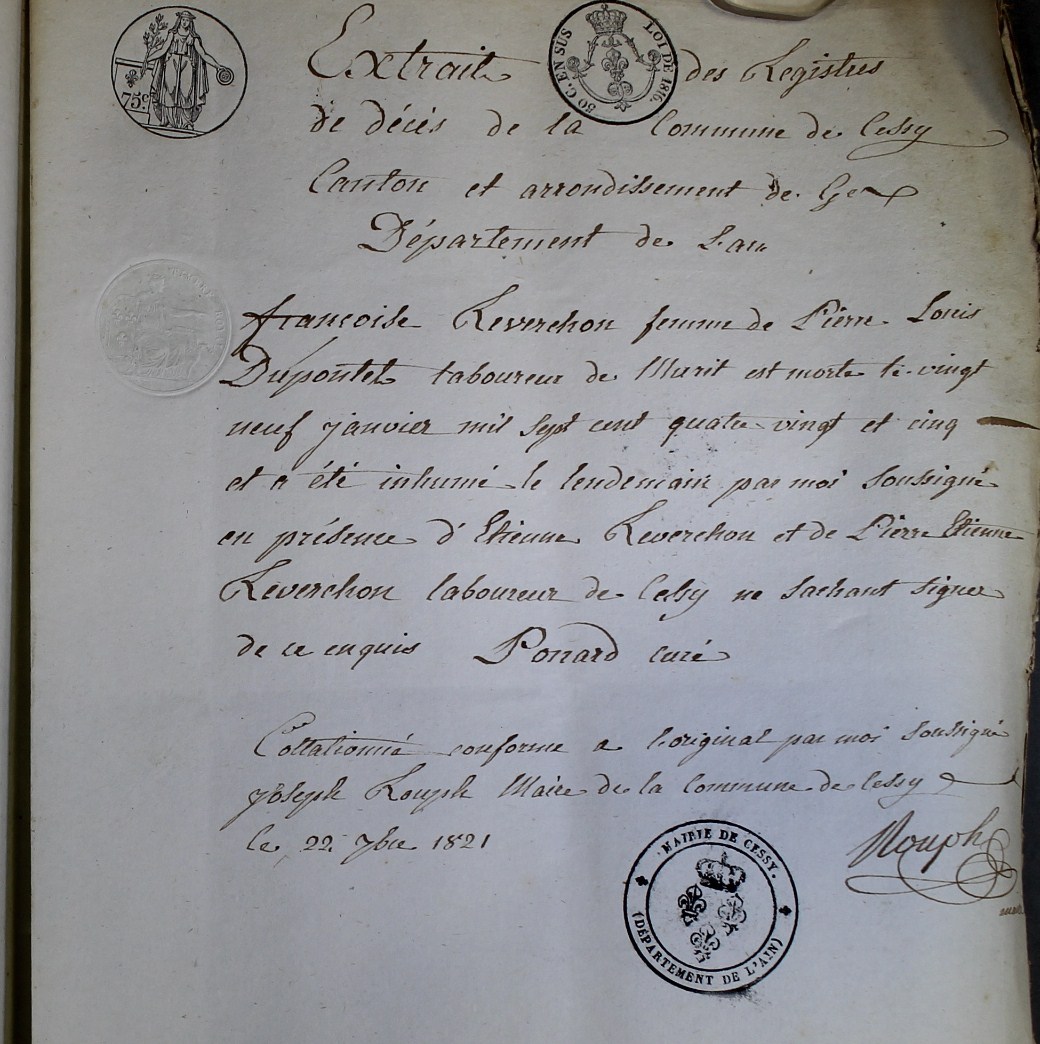 75c.
50 C. EN SUS LOI DE 1816
Extrait des Registres
de décés de la Commune de Cessy
Canton et arrondissement de Gex
Département de L'ain
françoise Reverchon femme de Pierre Louis
Dupontet laboureur de Murit est morte le vingt
neuf janvier mil sept cent quatre vingt et cinq
et a été inhumé le lendemain par moi soussigné
en présence d'Etienne Reverchon et de Pierre Etienne
Reverchon laboureur de Cessy ne sachant signer
de ce enquis Ponard curé
Collationné conforme a l'original par moi soussigné
joseph Rouph Maire de la Commune de Cessy
le 22 7bre 1821
Rouph
MAIRIE DE CESSY.
(DÉPARTEMENT DE L'AIN)